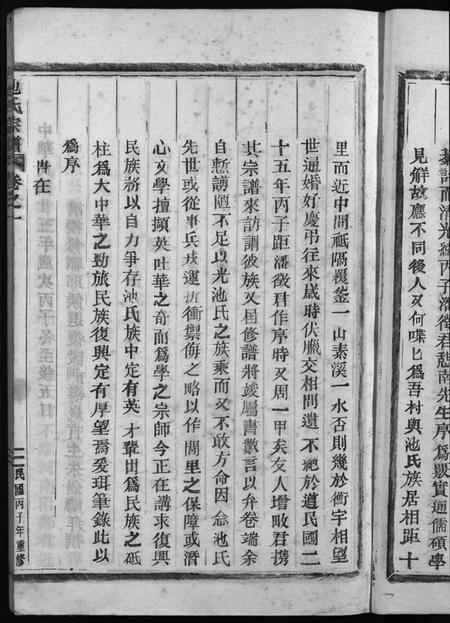 慕訪而清光緒丙子潘徵君憩南先生序爲嚴實通儒碩學
見解故應不同後人又何喋匕爲吾村與池氏族居相距十
里而近中間祗隔覆釜一山素溪一水否則幾於衡宇相望
世通婚好慶弔往來歲時伏臘交相問遺不絕於道民國二
十五年丙子距潘徵君作序時又周一甲矣友人增畋君携
其宗譜來訪謂彼族又屆修譜將竣屬書數言以弁卷端余
自慙譾陋不足以光池氏之族乘而又不敢方命因念池氏
先世或從事兵戎運折衝禦侮之略以作閭里之保障或潛
心文學擅擷英吐華之奇而爲學之宗師今正在講求復興
民族務以自力爭存池氏族中定有英才輩出爲民族之砥
柱爲大中華之勁旅民族復興定有厚望焉爰珥筆錄此以
爲序
昔在
池氏宗譜 卷之一
民國丙子年重修